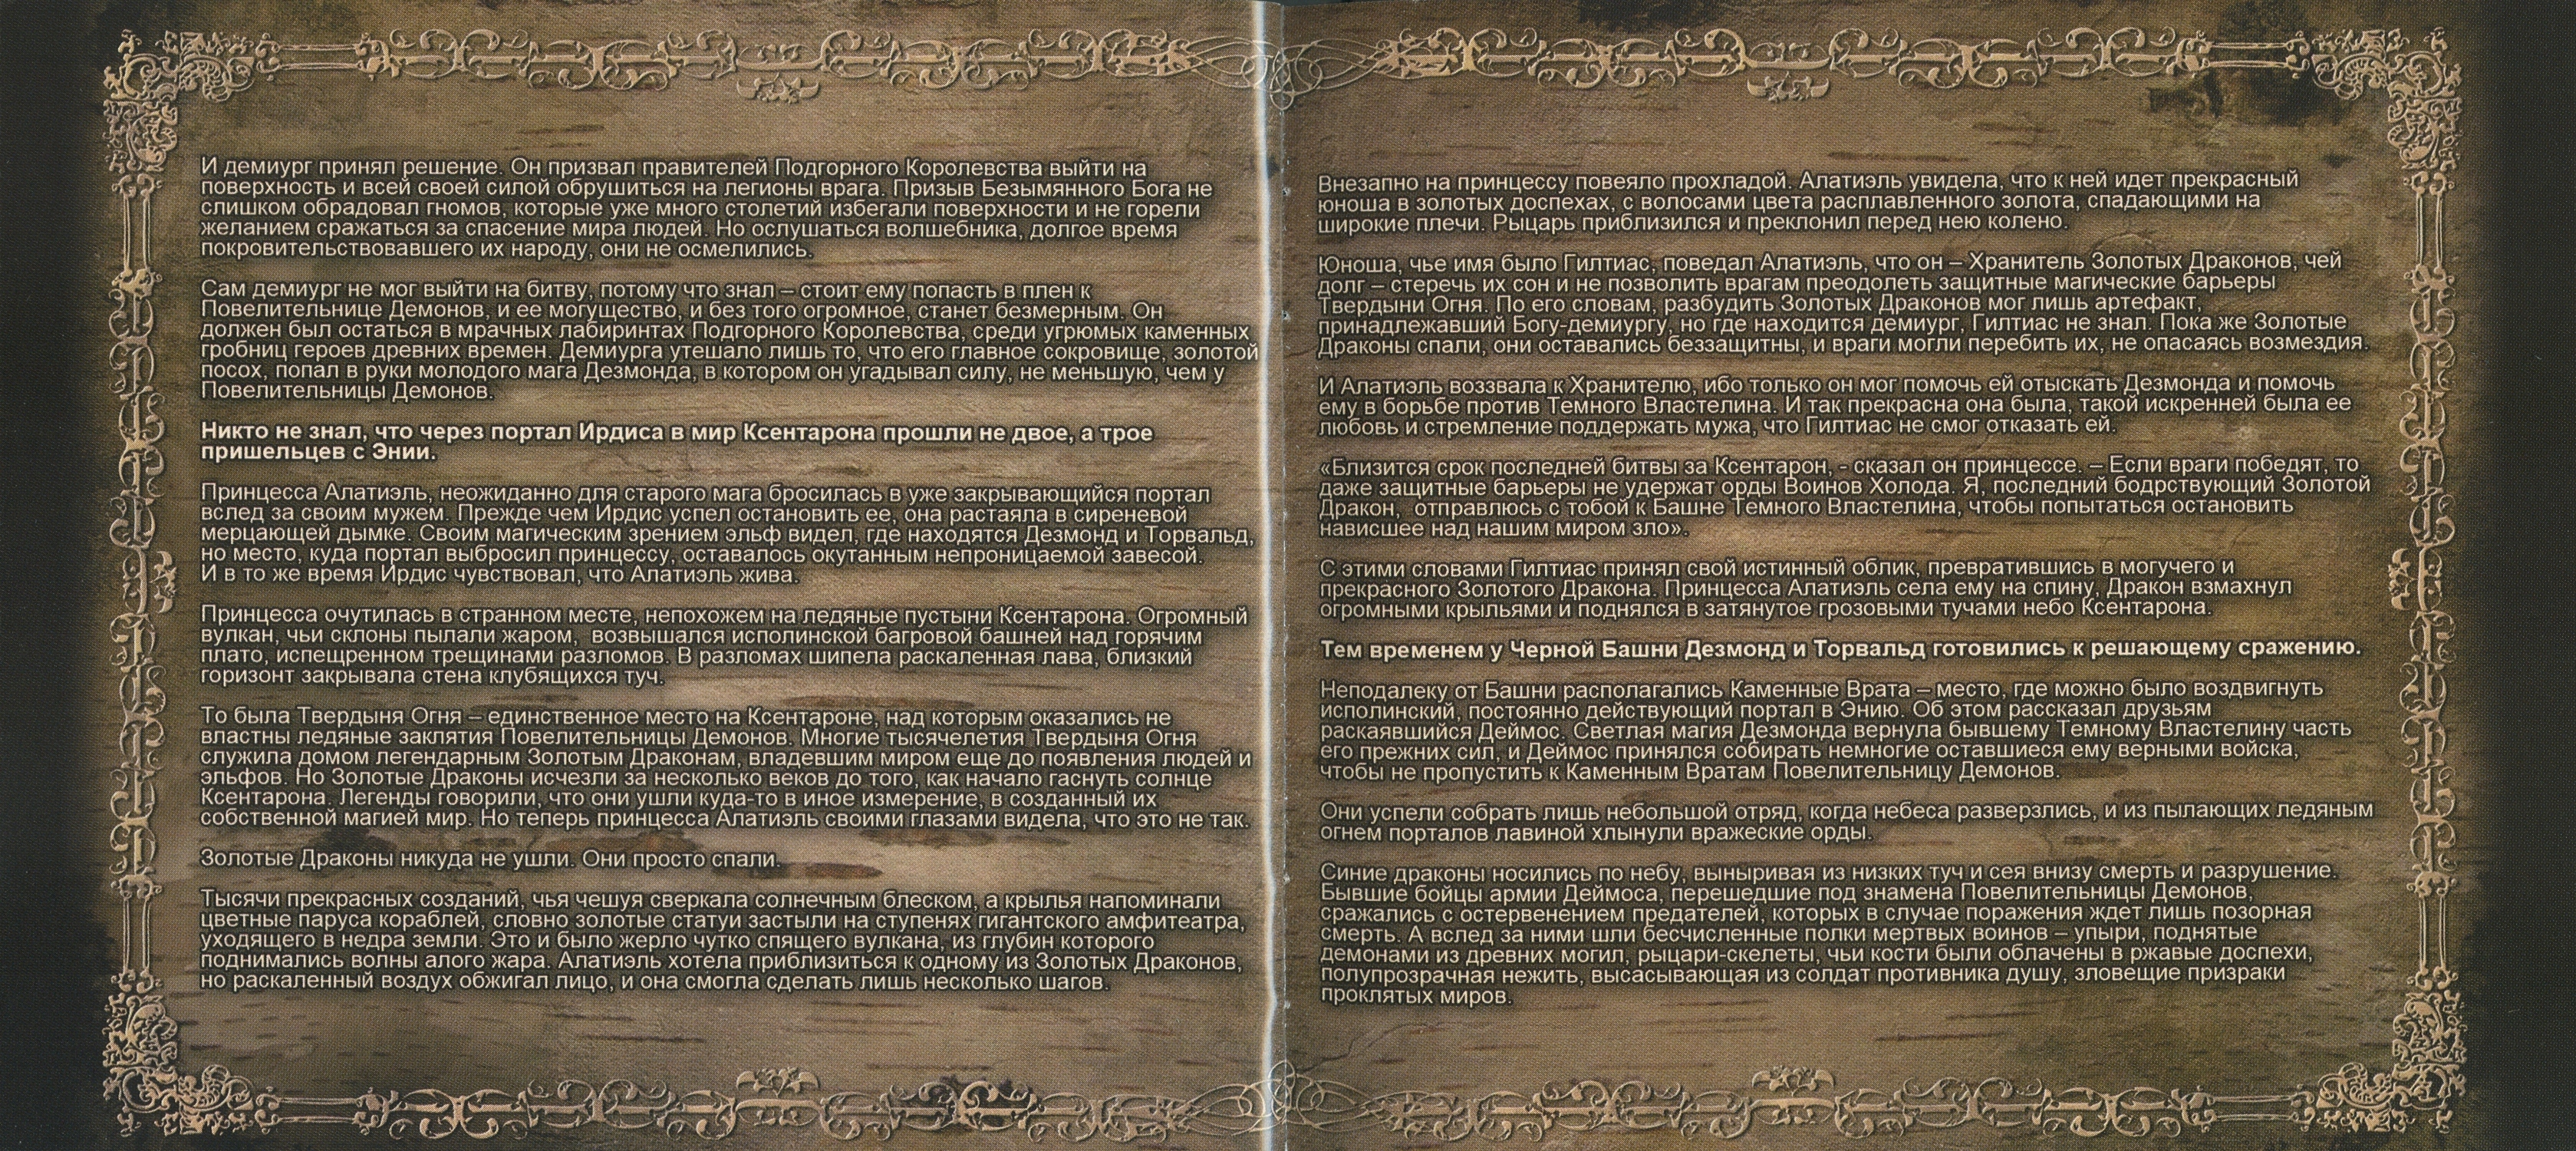 И демиург принял решение. Он призвал правителей Подгорного Королевства выйти на
поверхность и всей своей силой обрушиться на легионы врага. Призыв Безымянного Бога не
слишком обрадовал гномов, которые уже много столетий избегали поверхности и не горели
желанием сражаться за спасение мира людей. Но ослушаться волшебника, долгое время
покровительствовавшего их народу, они не осмелились.
Сам демиург не мог выйти на битву, потому что знал – стоит ему попасть в плен к
Повелительнице Демонов, и ее могущество, и без того огромное, станет безмерным. Он
должен был остаться в мрачных лабиринтах Подгорного Королевства, среди угрюмых каменных
гробниц героев древних времен. Демиурга утешало лишь то, что его главное сокровище, золотой
посох, попал в руки молодого мага Дезмонда, в котором он угадывал силу, не меньшую, чем у
Повелительницы Демонов.
Никто не знал, что через портал Ирдиса в мир Ксентарона прошли не двое, а трое
пришельцев с Энии.
Принцесса Алатиэль, неожиданно для старого мага бросилась в уже закрывающийся портал
вслед за своим мужем. Прежде чем Ирдис успел остановить ее, она растаяла в сиреневой
мерцающей дымке. Своим магическим зрением эльф видел, где находятся Дезмонд и Торвальд,
но место, куда портал выбросил принцессу, оставалось окутанным непроницаемой завесой.
И в то же время Ирдис чувствовал, что Алатиэль жива.
Принцесса очутилась в странном месте, непохожем на ледяные пустыни Ксентарона. Огромный
вулкан, чьи склоны пылали жаром,  возвышался исполинской багровой башней над горячим
плато, испещренном трещинами разломов. В разломах шипела раскаленная лава, близкий
горизонт закрывала стена клубящихся туч.
То была Твердыня Огня – единственное место на Ксентароне, над которым оказались не
властны ледяные заклятия Повелительницы Демонов. Многие тысячелетия Твердыня Огня
служила домом легендарным Золотым Драконам, владевшим миром еще до появления людей и
эльфов. Но Золотые Драконы исчезли за несколько веков до того, как начало гаснуть солнце
Ксентарона. Легенды говорили, что они ушли куда-то в иное измерение, в созданный их
собственной магией мир. Но теперь принцесса Алатиэль своими глазами видела, что это не так.
Золотые Драконы никуда не ушли. Они просто спали.
Тысячи прекрасных созданий, чья чешуя сверкала солнечным блеском, а крылья напоминали
цветные паруса кораблей, словно золотые статуи застыли на ступенях гигантского амфитеатра,
уходящего в недра земли. Это и было жерло чутко спящего вулкана, из глубин которого
поднимались волны алого жара. Алатиэль хотела приблизиться к одному из Золотых Драконов,
но раскаленный воздух обжигал лицо, и она смогла сделать лишь несколько шагов.
Внезапно на принцессу повеяло прохладой. Алатиэль увидела, что к ней идет прекрасный
юноша в золотых доспехах, с волосами цвета расплавленного золота, спадающими на
широкие плечи. Рыцарь приблизился и преклонил перед нею колено.
Юноша, чье имя было Гилтиас, поведал Алатиэль, что он – Хранитель Золотых Драконов, чей
долг – стеречь их сон и не позволить врагам преодолеть защитные магические барьеры
Твердыни Огня. По его словам, разбудить Золотых Драконов мог лишь артефакт,
принадлежавший Богу-демиургу, но где находится демиург, Гилтиас не знал. Пока же Золотые
Драконы спали, они оставались беззащитны, и враги могли перебить их, не опасаясь возмездия.
И Алатиэль воззвала к Хранителю, ибо только он мог помочь ей отыскать Дезмонда и помочь
ему в борьбе против Темного Властелина. И так прекрасна она была, такой искренней была ее
любовь и стремление поддержать мужа, что Гилтиас не смог отказать ей.
«Близится срок последней битвы за Ксентарон, - сказал он принцессе. – Если враги победят, то
даже защитные барьеры не удержат орды Воинов Холода. Я, последний бодрствующий Золотой
Дракон,  отправлюсь с тобой к Башне Темного Властелина, чтобы попытаться остановить
нависшее над нашим миром зло».
С этими словами Гилтиас принял свой истинный облик, превратившись в могучего и
прекрасного Золотого Дракона. Принцесса Алатиэль села ему на спину, Дракон взмахнул
огромными крыльями и поднялся в затянутое грозовыми тучами небо Ксентарона.
Тем временем у Черной Башни Дезмонд и Торвальд готовились к решающему сражению.
Неподалеку от Башни располагались Каменные Врата – место, где можно было воздвигнуть
исполинский, постоянно действующий портал в Энию. Об этом рассказал друзьям
раскаявшийся Деймос. Светлая магия Дезмонда вернула бывшему Темному Властелину часть
его прежних сил, и Деймос принялся собирать немногие оставшиеся ему верными войска,
чтобы не пропустить к Каменным Вратам Повелительницу Демонов.
Они успели собрать лишь небольшой отряд, когда небеса разверзлись, и из пылающих ледяным
огнем порталов лавиной хлынули вражеские орды.
Синие драконы носились по небу, выныривая из низких туч и сея внизу смерть и разрушение.
Бывшие бойцы армии Деймоса, перешедшие под знамена Повелительницы Демонов,
сражались с остервенением предателей, которых в случае поражения ждет лишь позорная
смерть. А вслед за ними шли бесчисленные полки мертвых воинов – упыри, поднятые
демонами из древних могил, рыцари-скелеты, чьи кости были облачены в ржавые доспехи,
полупрозрачная нежить, высасывающая из солдат противника душу, зловещие призраки
проклятых миров.